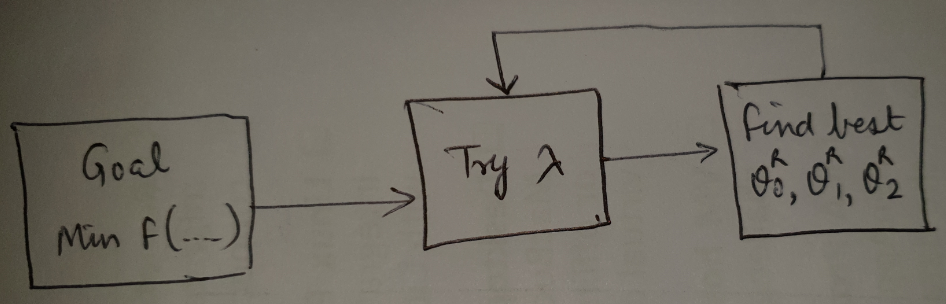 Goal
Min f(....)
Try λ
find best
θ₀ᴿ, θ₁ᴿ, θ₂ᴿ